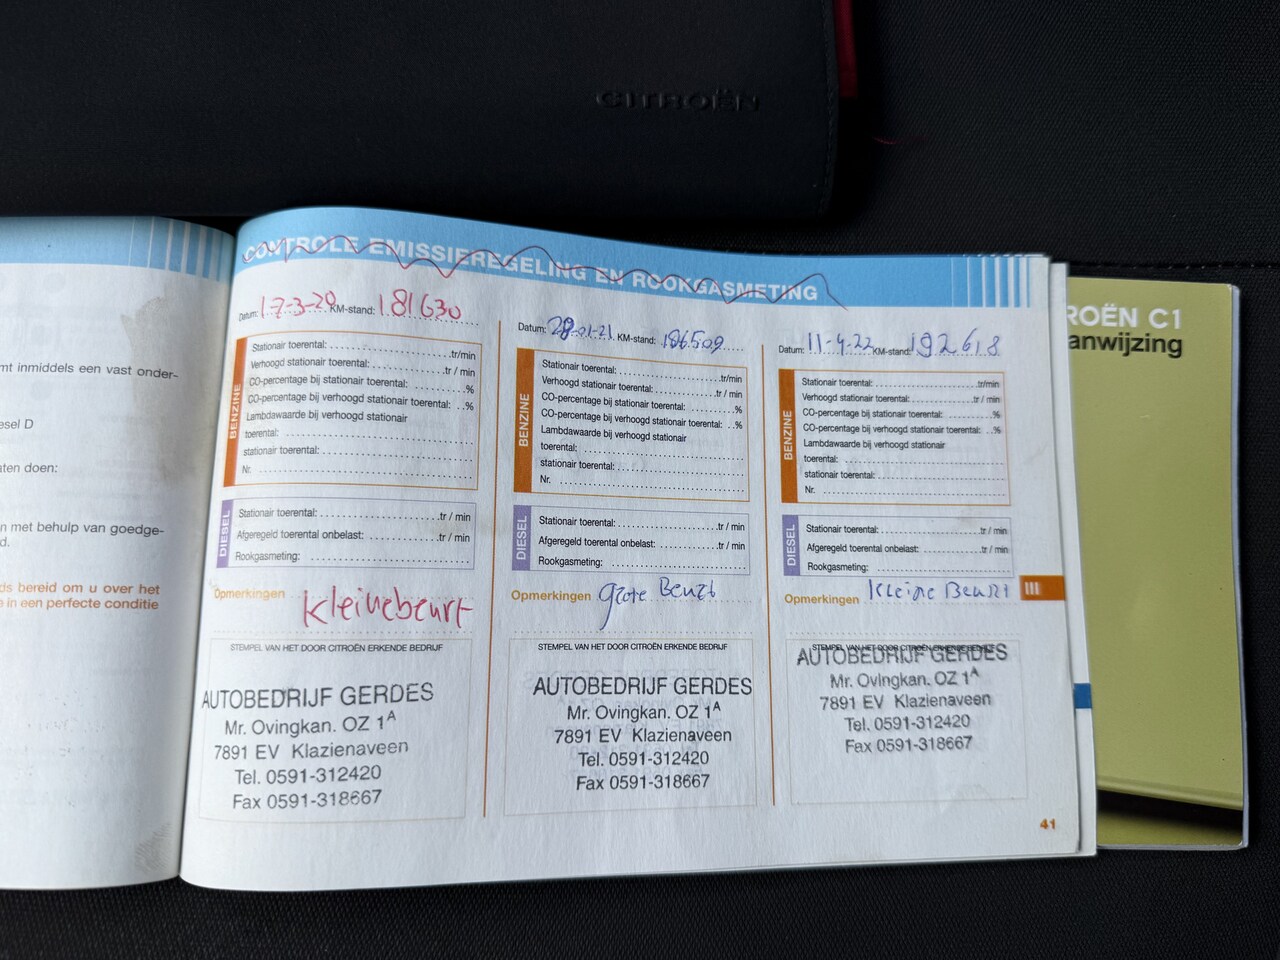 CITROËN
CONTROLE EMISSIEREGELING EN ROOKGASMETING
mt inmiddels een vast onder-
esel D
aten doen:
n met behulp van goedge-
d.
ds bereid om u over het
in een perfecte conditie
Datum: 17-3-20 KM-stand: 181630
BENZINE
Stationair toerental: tr/min
Verhoogd stationair toerental: tr / min
CO-percentage bij stationair toerental: %
CO-percentage bij verhoogd stationair toerental: %
Lambdawaarde bij verhoogd stationair
toerental:
stationair toerental:
Nr.
DIESEL
Stationair toerental: tr / min
Afgeregeld toerental onbelast: tr / min
Rookgasmeting:
Opmerkingen Kleinebeurt
STEMPEL VAN HET DOOR CITROËN ERKENDE BEDRIJF
AUTOBEDRIJF GERDES
Mr. Ovingkan. OZ 1A
7891 EV Klazienaveen
Tel. 0591-312420
Fax 0591-318667
Datum: 28-01-21 KM-stand: 186509
BENZINE
Stationair toerental: tr/min
Verhoogd stationair toerental: tr / min
CO-percentage bij stationair toerental: %
CO-percentage bij verhoogd stationair toerental: %
Lambdawaarde bij verhoogd stationair
toerental:
stationair toerental:
Nr.
DIESEL
Stationair toerental: tr / min
Afgeregeld toerental onbelast: tr / min
Rookgasmeting:
Opmerkingen grote Beurt
STEMPEL VAN HET DOOR CITROËN ERKENDE BEDRIJF
AUTOBEDRIJF GERDES
Mr. Ovingkan. OZ 1A
7891 EV Klazienaveen
Tel. 0591-312420
Fax 0591-318667
Datum: 11-4-22 KM-stand: 192618
BENZINE
Stationair toerental: tr/min
Verhoogd stationair toerental: tr / min
CO-percentage bij stationair toerental: %
CO-percentage bij verhoogd stationair toerental: %
Lambdawaarde bij verhoogd stationair
toerental:
stationair toerental:
Nr.
DIESEL
Stationair toerental: tr / min
Afgeregeld toerental onbelast: tr / min
Rookgasmeting:
Opmerkingen Kleine Beurt
STEMPEL VAN HET DOOR CITROËN ERKENDE BEDRIJF
AUTOBEDRIJF GERDES
Mr. Ovingkan. OZ 1A
7891 EV Klazienaveen
Tel. 0591-312420
Fax 0591-318667
III
41
ROËN C1
anwijzing